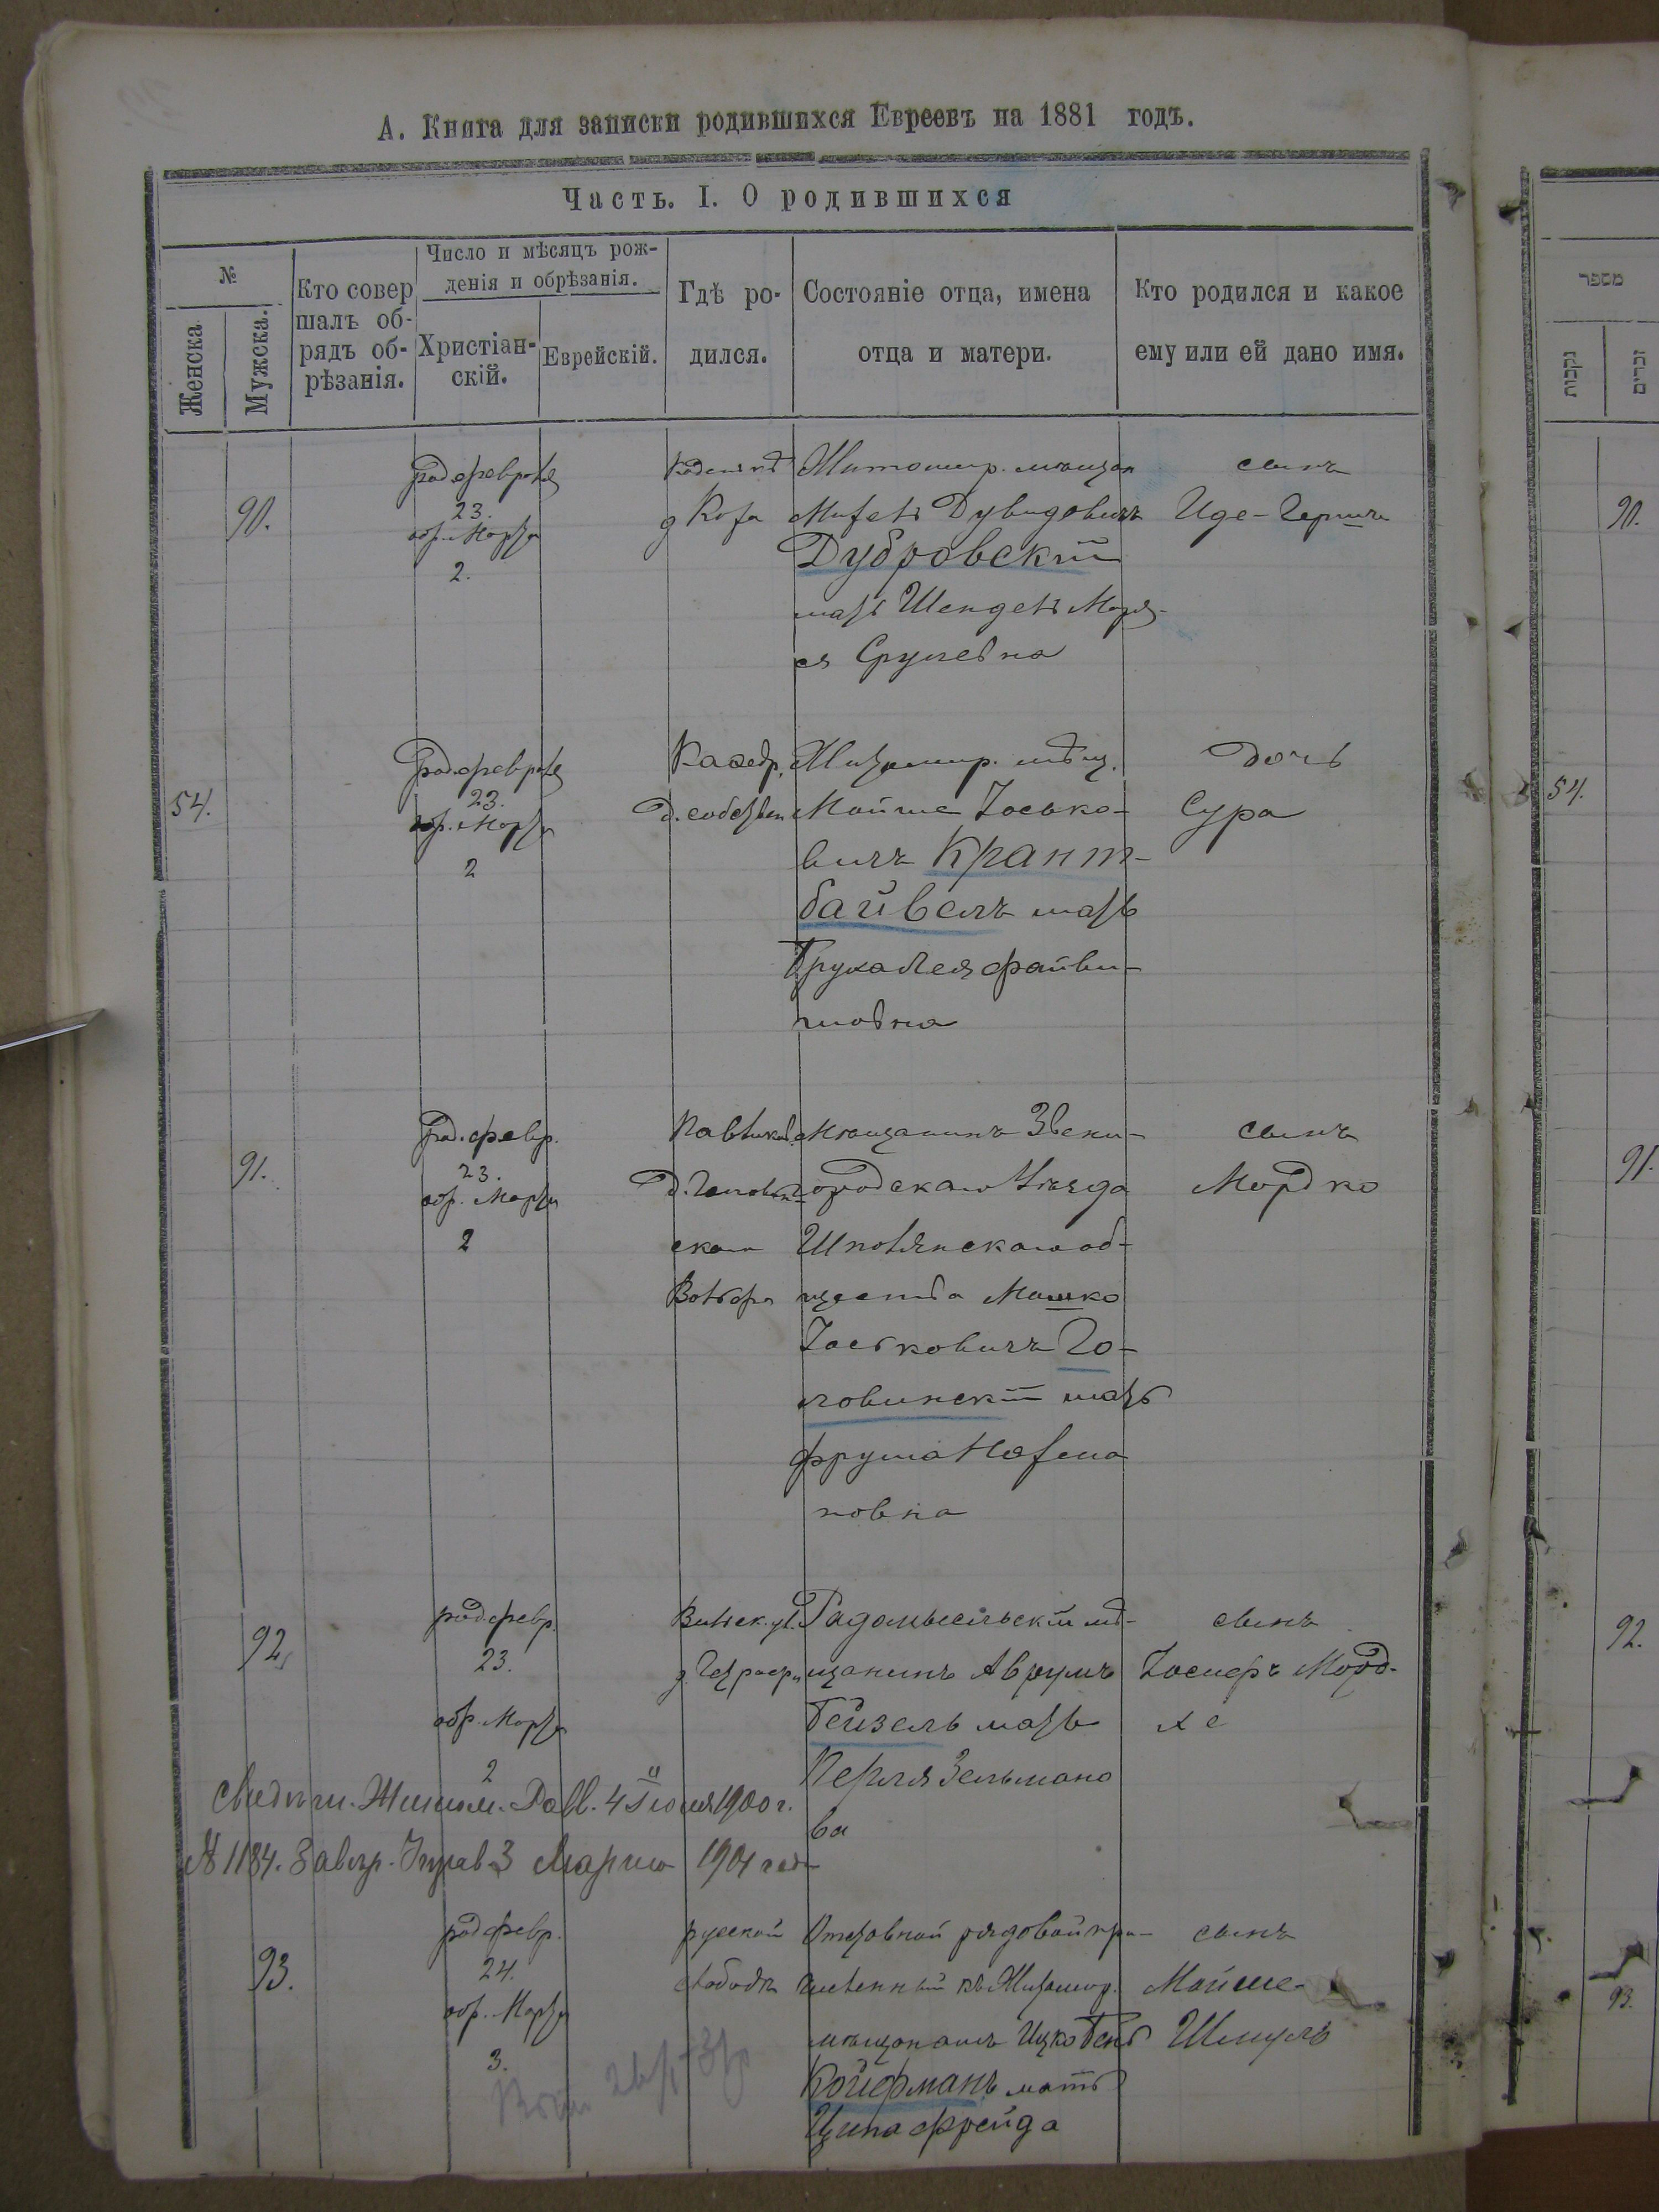 А. Книга для записки родившихся Евреевъ на 1881 годъ.
Часть. I. О родившихся
№
Женска
Мужска.
Кто совер
шалъ об-
рядъ об-
рѣзанія.
Число и мѣсяцъ рож-
денія и обрѣзанія.
Христіан-
скій.
Еврейскій.
Гдѣ ро-
дился.
Состояніе отца, имена
отца и матери.
Кто родился и какое
ему или ей дано имя.
90.
род. февраля
23.
обр. Марта
2.
Житомир. мѣщан
Дувидовичъ
Дубровскій
мать Шендель
Срулевна
сынъ
Иде-Гершъ
54.
род. февраля
23.
обр. Марта
2
Каѳедр.
д. собствен
Житомир. мѣщ.
Мойше Іосько-
вичъ Крант-
байвелъ мать
Файви-
шовна
дочь
Сура
91.
род. февр.
23.
обр. Марта
2
скаго
Мѣщанинъ Звени-
городскаго Уѣзда
Шполянскаго об-
щества Мошко
Іоськовичъ Го-
ловинскій мать
Фрума
новна
сынъ
Мордко
92.
род. февр.
23.
обр. Марта
2
Вильск. ул.
Радомысльскій мѣ-
щанинъ Аврумъ
Бейзелъ мать
Перля Зельмано
ва
сынъ
Іосифъ Морд-
хе
4 Іюня 1900 г.
№ 1184. 3 Марта 1901 года
93.
род. февр.
24.
обр. Марта
3.
русской
слободкѣ
Отставной рядовой при-
численный къ Житомир.
мѣщанамъ Ицко Бень
Койфманъ мать
Ципа Фрейда
сынъ
Мойше-
Шмуль
מספר
נקבות
זכרים
90.
54.
91.
92.
93.